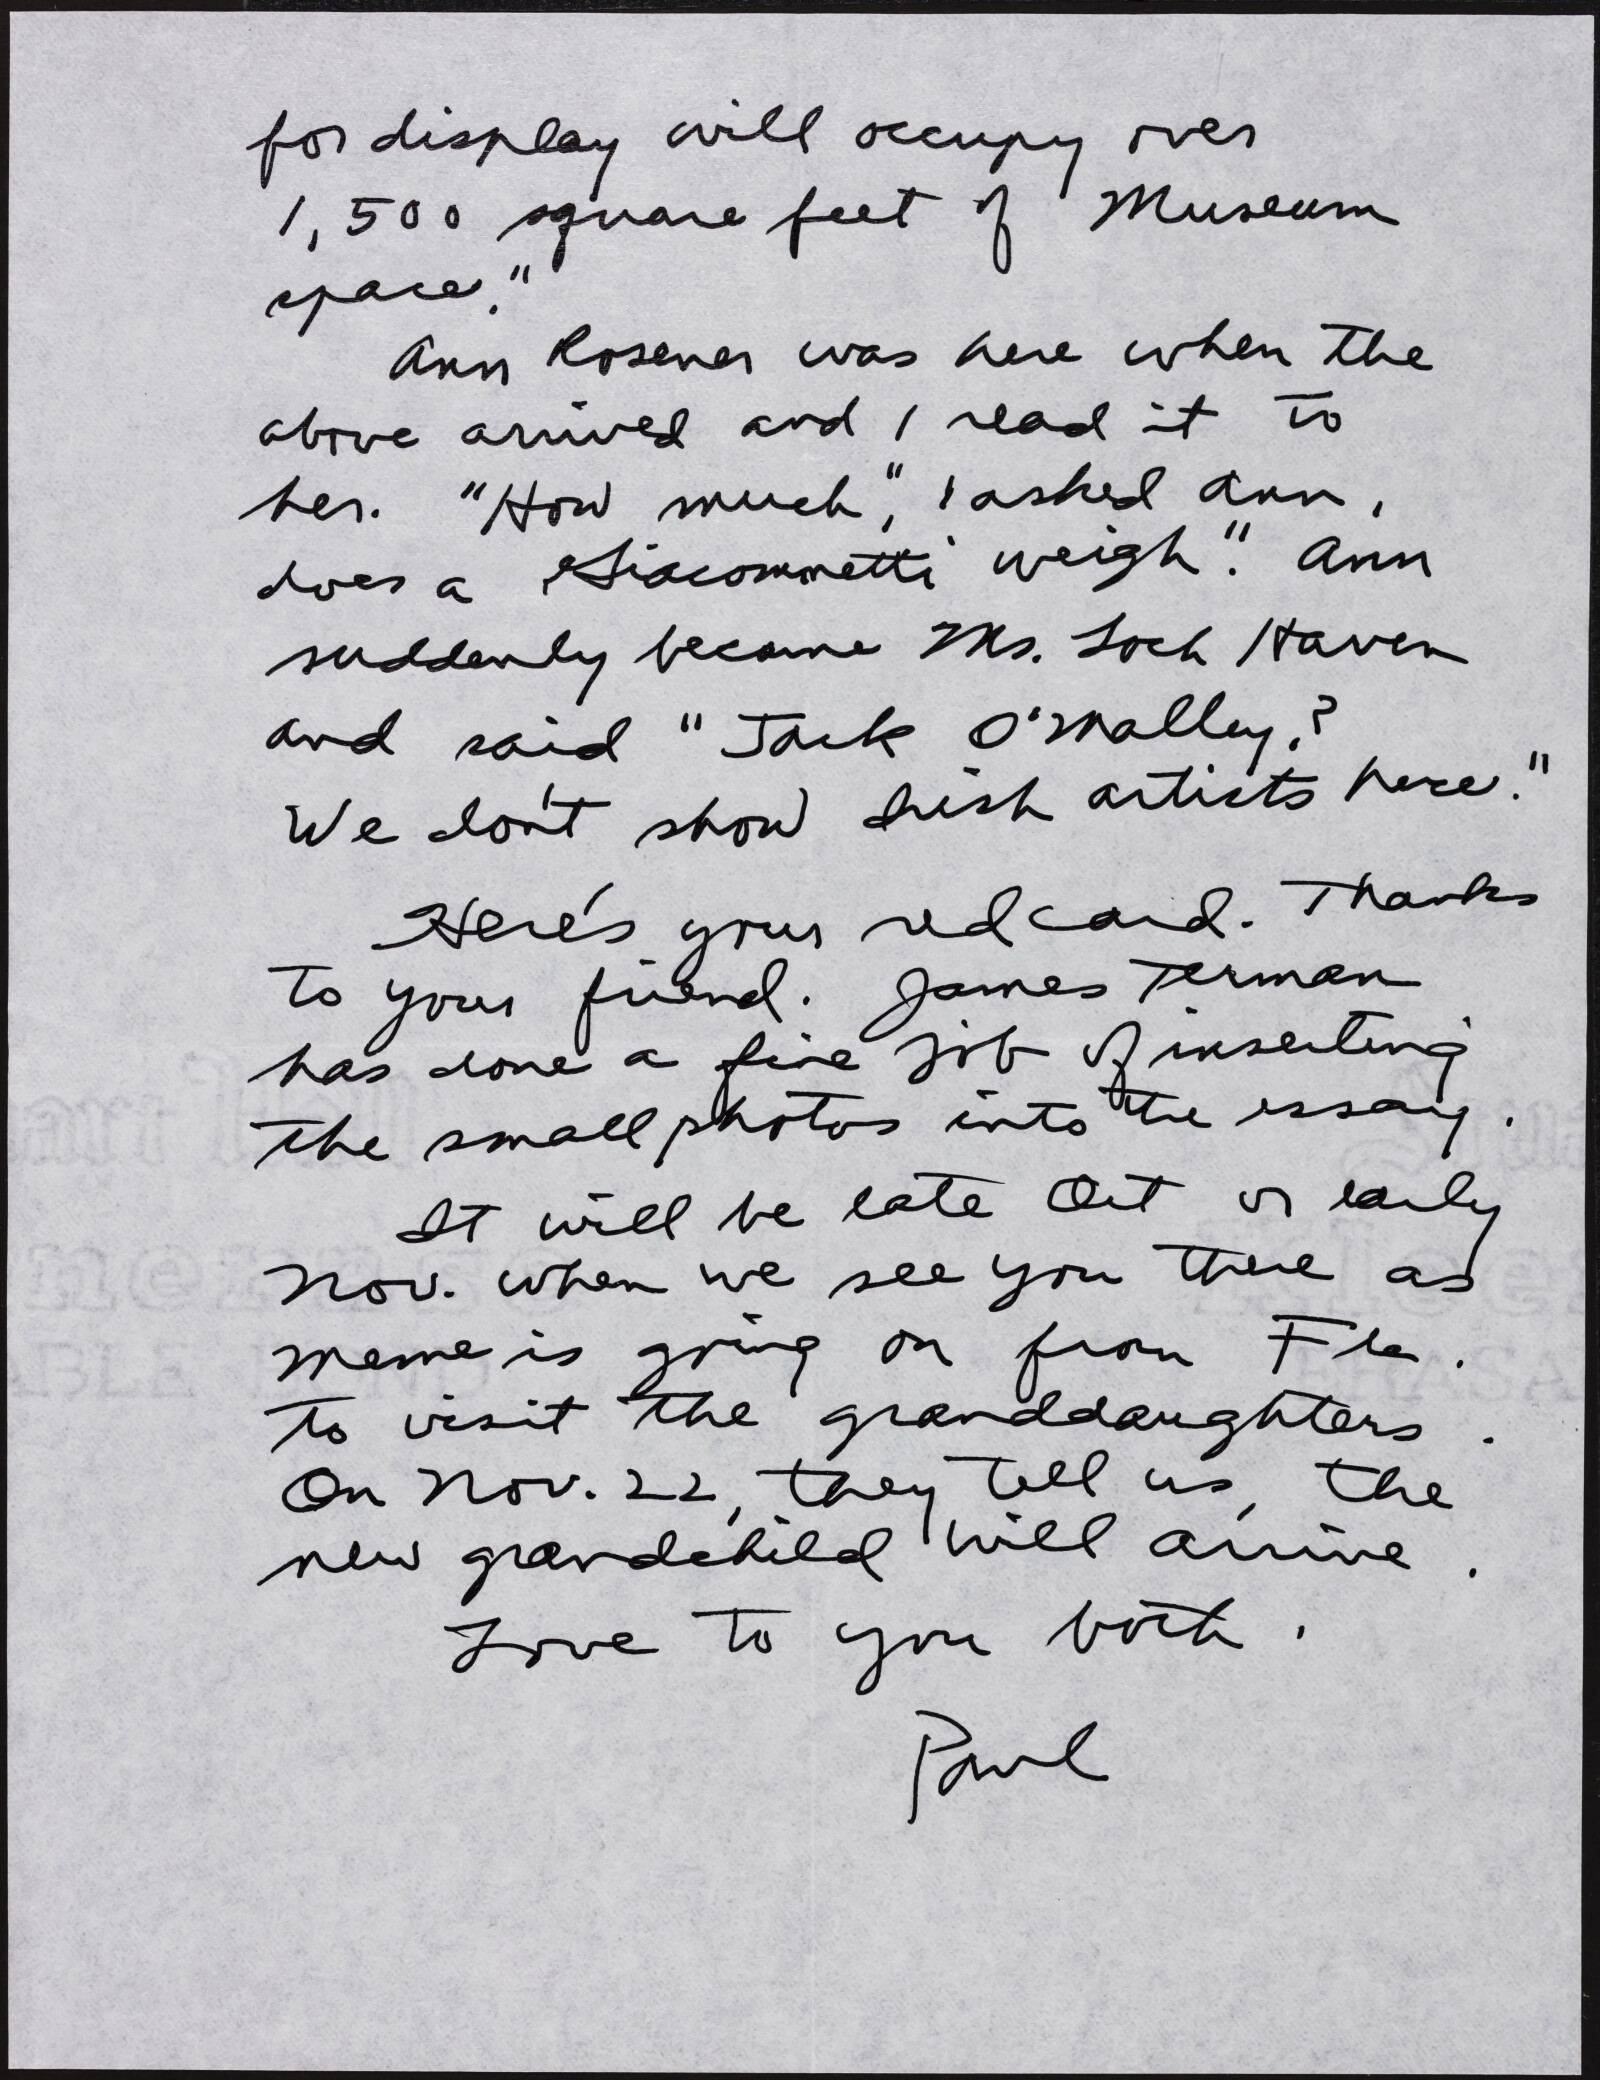 for display will occupy over
1,500 square feet of Museum
space."
Ann Rosener was here when the
above arrived and I read it to
her. "How much," I asked Ann,
does a Giacommetti weigh". Ann
suddenly became Ms. Loch Haven
and said "Jack O'Malley?
We don't show Irish artists here."
Here's your red card. Thanks
to your friend. James Terman
has done a fine job of inserting
the small photos into the essay.
It will be late Oct or early
Nov. when we see you there as
Meme is going on from Fla.
to visit the granddaughters.
On Nov. 22, they tell us, the
new grandchild will arrive.
Love to you both.
Paul